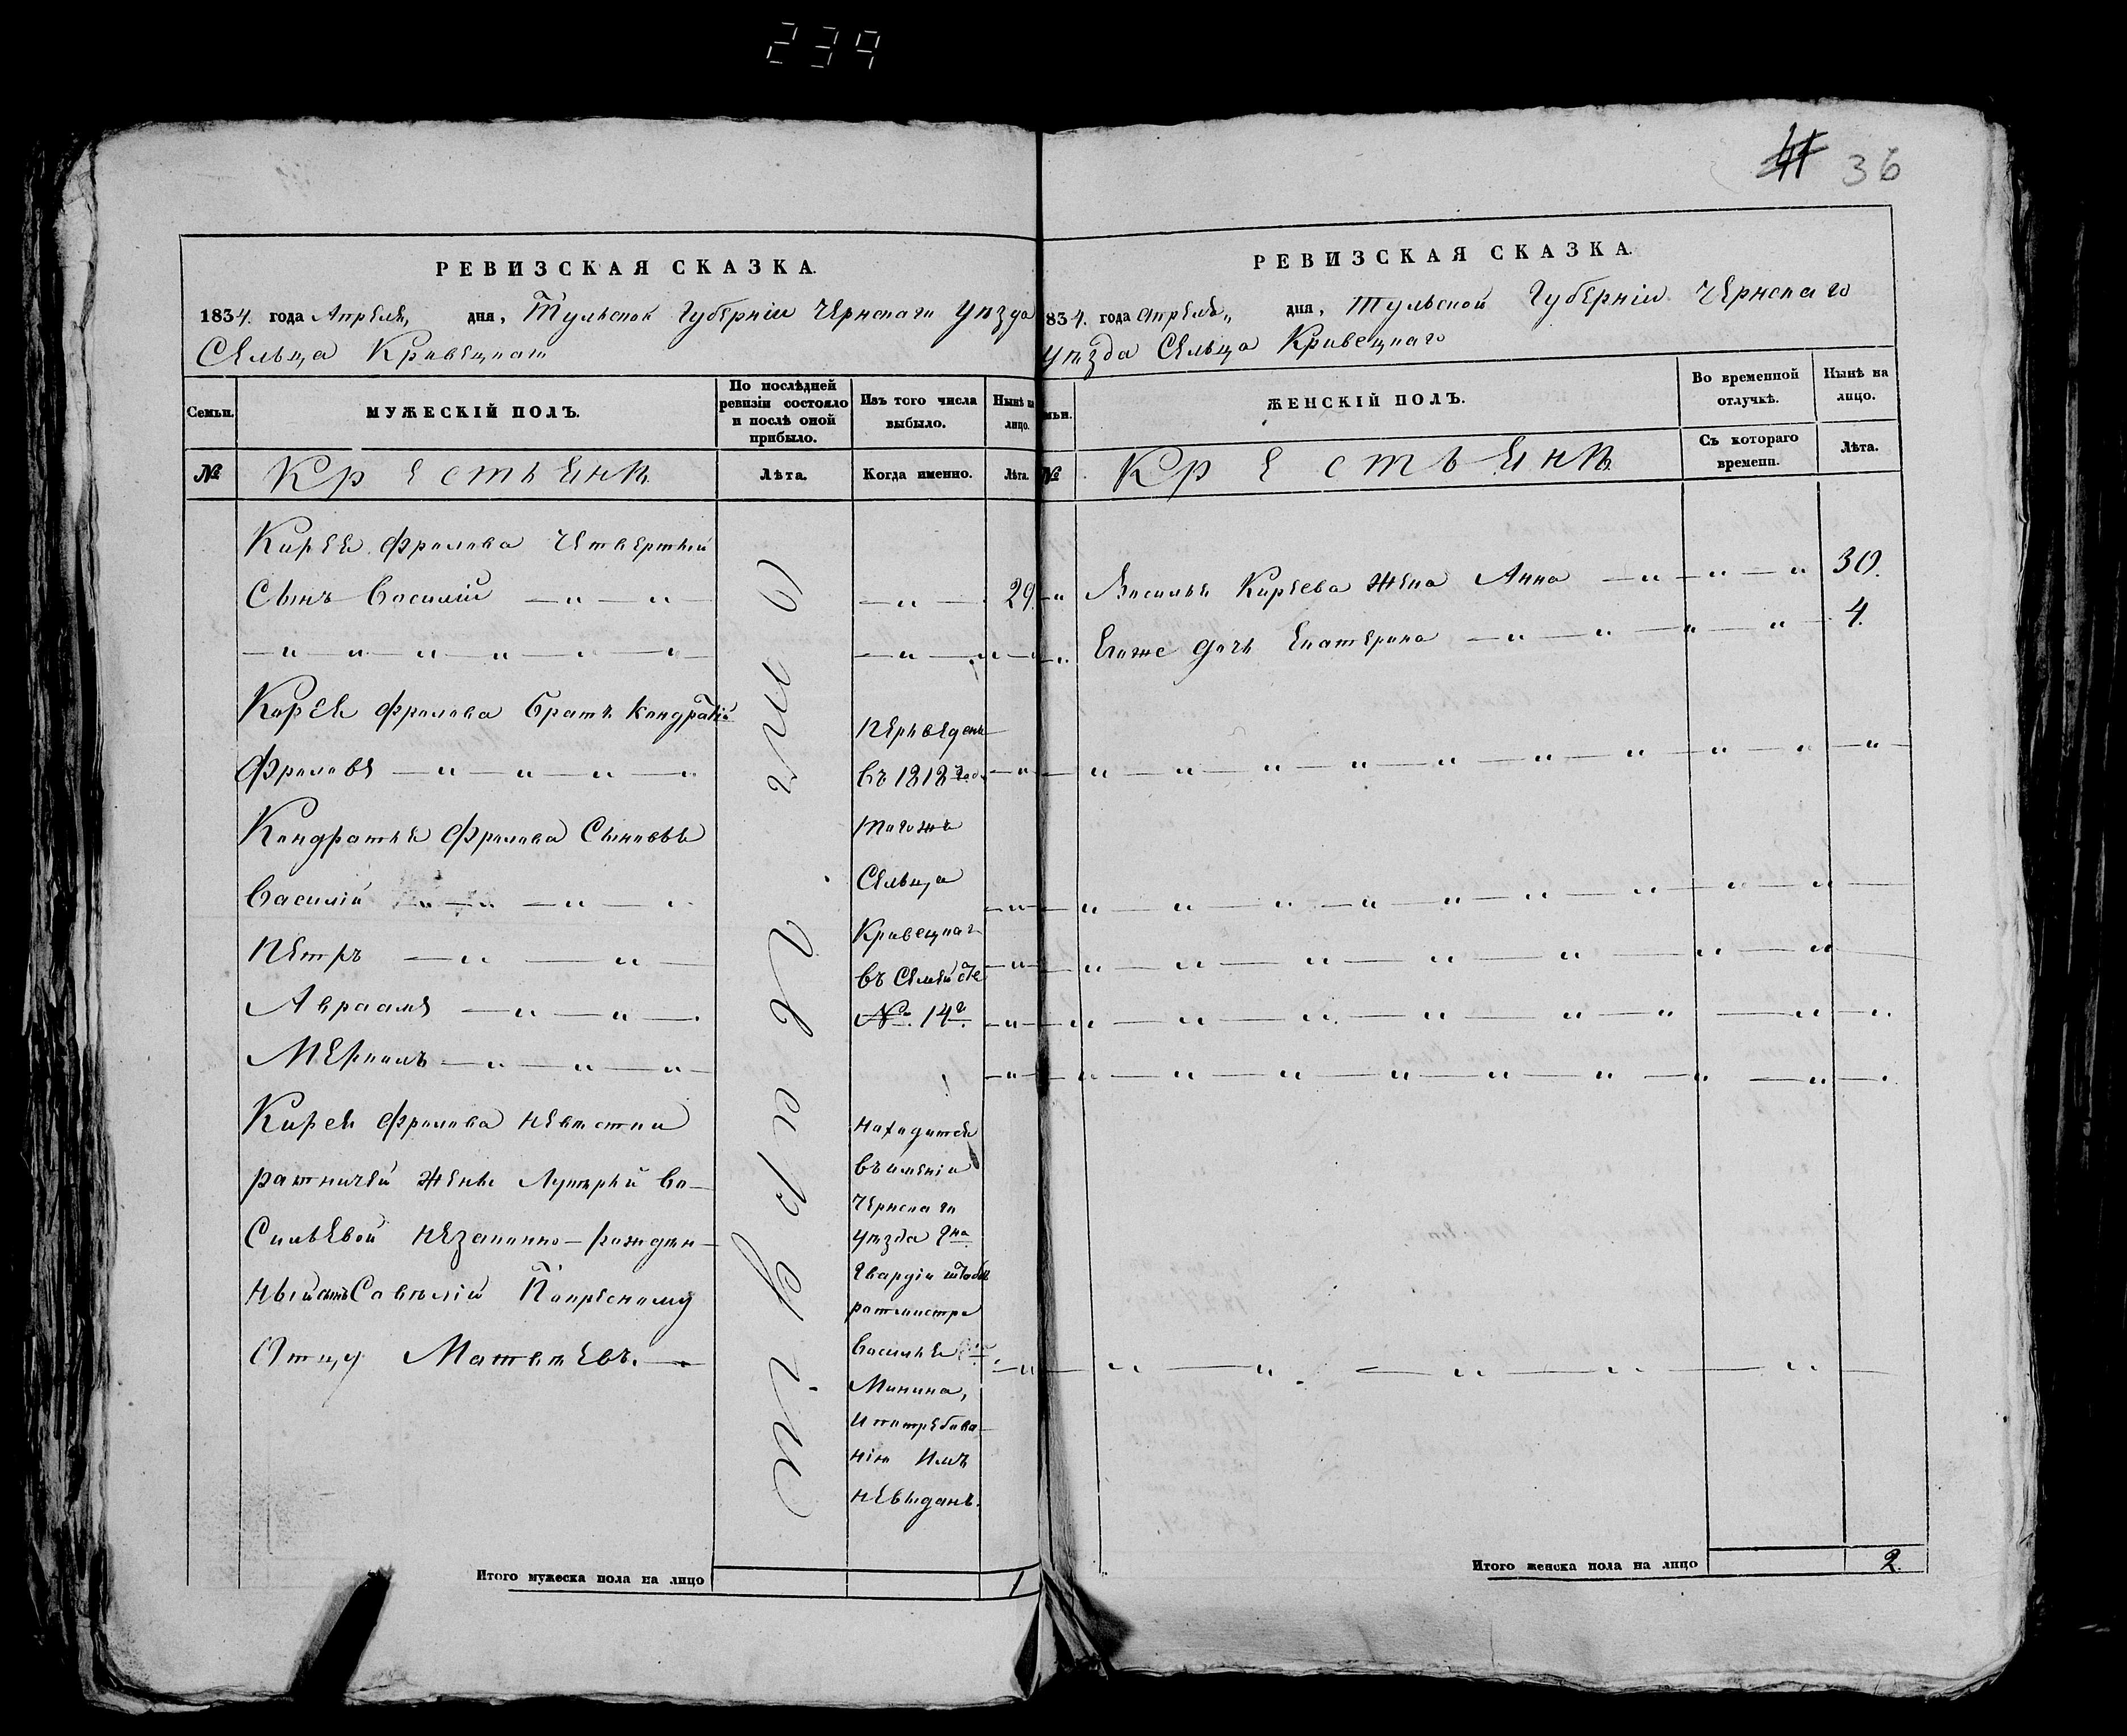 239
41 36
РЕВИЗСКАЯ СКАЗКА.
1834. года Апреля, дня, Тульской Губерніи Чернскаго Уѣзда
Сельца Кривецкаго
Семьи. МУЖЕСКІЙ ПОЛЪ. По послѣдней ревизіи состояло и послѣ оной прибыло. Изъ того числа выбыло. Нынѣ на лицо.
№ Крестьянъ Лѣта. Когда именно. Лѣта.
Кирея Фролова Четвертый
Сынъ Василій — „ — „ — „ — 29.
— „ — „ — „ — „ — „ — „ —
Кирея Фролова братъ Кондратій
Фроловъ — „ — „ — „ —
Кондратья Фролова Сыновья
Василій — „ — „ — „ — „
Петръ — „ — „ —
Авраамъ — „ — „ —
Меркулъ — „ — „ — „ —
переведенъ
въ 1818 году
тогожъ
Сельца
Кривецкаго
въ Семействе
№. 14й.
Кирея Фролова невестки
ратничей жены Лукерьи Ва-
Сильевой незаконно-рожден-
ный сынъ Савелій По крестному
Отцу Матвѣевъ. —
находится
въ имѣніи
Чернскаго
уѣзда Гна
Гвардіи штабъ
ротмистра
Василья
Минина,
и по требова-
нію имъ
невыданъ.
Итого мужеска пола на лицо 1
РЕВИЗСКАЯ СКАЗКА.
834. года Апреля „ дня, Тульской Губерніи Чернскаго
Уѣзда Сельца Кривецкаго
мьи. ЖЕНСКІЙ ПОЛЪ. Во временной отлучкѣ. Нынѣ на лицо.
№ Крестьянъ Съ котораго времени. Лѣта.
Василья Киреева жена Анна — „ — „ — „ 30.
Егоже дочь Екатерина — „ — „ — „ — „ — 4.
Итого женска пола на лицо 2.